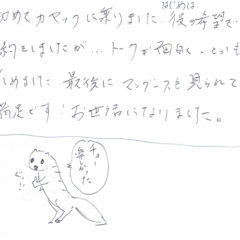 はじめは、
初めてカヤックに乗りました。彼の希望で
約をしましたが…トークが面白く、とっても
しめました。最後にマングースも見られて
満足です！お世話になりました。
チョー
楽しかった
ぐっ!!